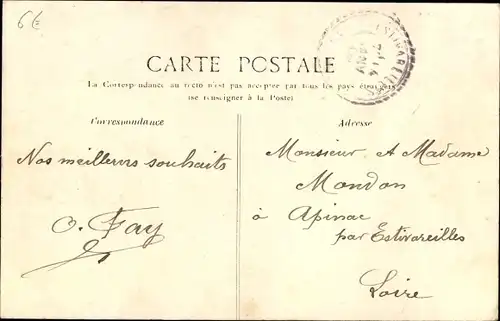 6€
CARTE POSTALE
La Correspondance au recto n'est pas acceptée par tous les pays étrangers
(se renseigner à la Poste)
Correspondance
Adresse
Nos meilleurs souhaits
O. Fay
Monsieur et Madame
Mondon
à Apinac
par Estivareilles
Loire